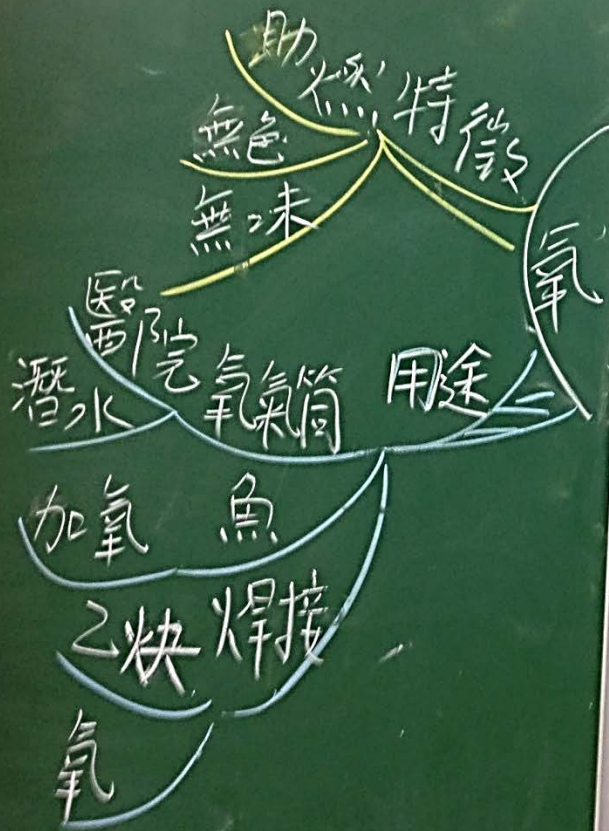 助燃
特徵
無色
無味
氧
醫院
潛水
氧氣筒
用途
加氧
魚
乙炔
焊接
氧